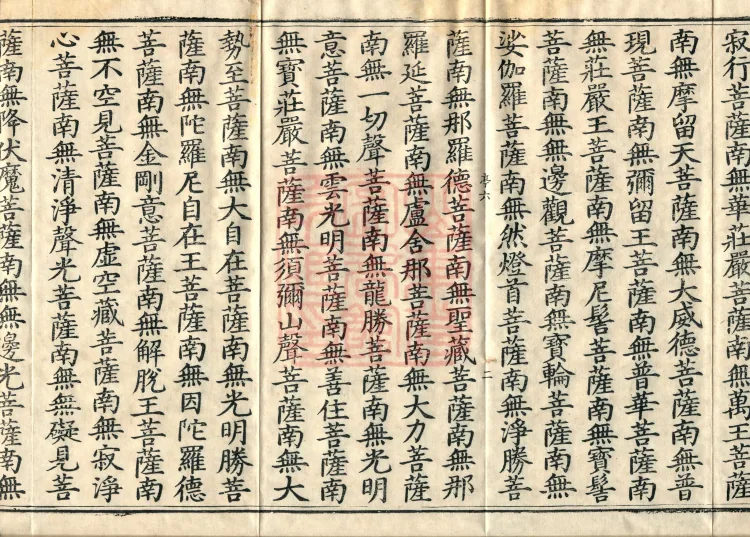 寂行菩薩南無華莊嚴菩薩南無萬王菩薩
南無摩留天菩薩南無大威德菩薩南無普
現菩薩南無彌留王菩薩南無普華菩薩南
無莊嚴王菩薩南無摩尼髻菩薩南無寶髻
菩薩南無無邊觀菩薩南無寶輪菩薩南無
娑伽羅菩薩南無然燈首菩薩南無淨勝菩
二
薩南無那羅德菩薩南無聖藏菩薩南無那
羅延菩薩南無盧舍那菩薩南無大力菩薩
南無一切聲菩薩南無龍勝菩薩南無光明
意菩薩南無雲光明菩薩南無善住菩薩南
無寶莊嚴菩薩南無須彌山聲菩薩南無大
勢至菩薩南無大自在菩薩南無光明勝菩
薩南無陀羅尼自在王菩薩南無因陀羅德
菩薩南無金剛意菩薩南無解脫王菩薩南
無不空見菩薩南無虛空藏菩薩南無寂淨
心菩薩南無清淨聲光菩薩南無無礙見菩
薩南無降伏魔菩薩南無無邊光菩薩南無